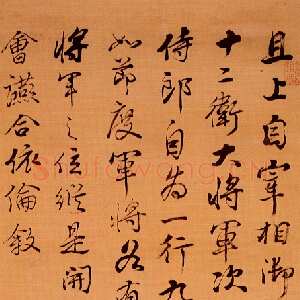 且上自宰相御
十二衛大將軍次
侍郎自為一行九
如節度軍將各有
將軍之位縱是開
會讌合依倫敘